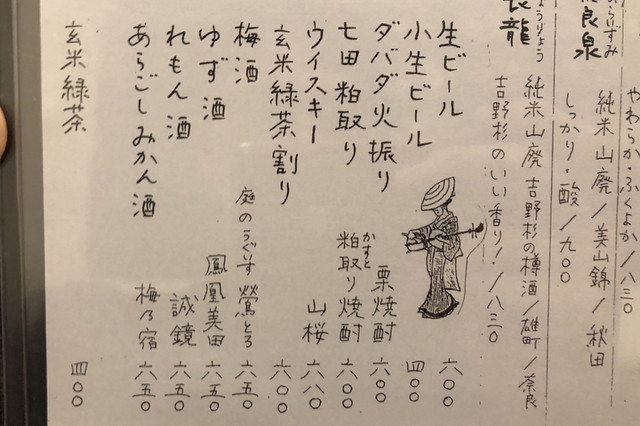 やわらか・ふくよか/八三〇
良泉 純米 山廃/美山錦/秋田
しっかり・酸/九〇〇
龍 純米山廃 吉野杉の樽酒/雄町/奈良
吉野杉のいい香り!/八三〇
生ビール 六〇〇
小生ビール 四〇〇
ダバダ火振り 栗焼酎 六〇〇
かすと
七田粕取り 粕取り焼酎 六〇〇
ウイスキー 山桜 六八〇
玄米緑茶割り 六〇〇
梅酒 庭のうぐいす 鶯とろ 六五〇
ゆず酒 鳳凰美田 六五〇
れもん酒 誠鏡 六五〇
あらごしみかん酒 梅乃宿 六五〇
玄米緑茶 四〇〇